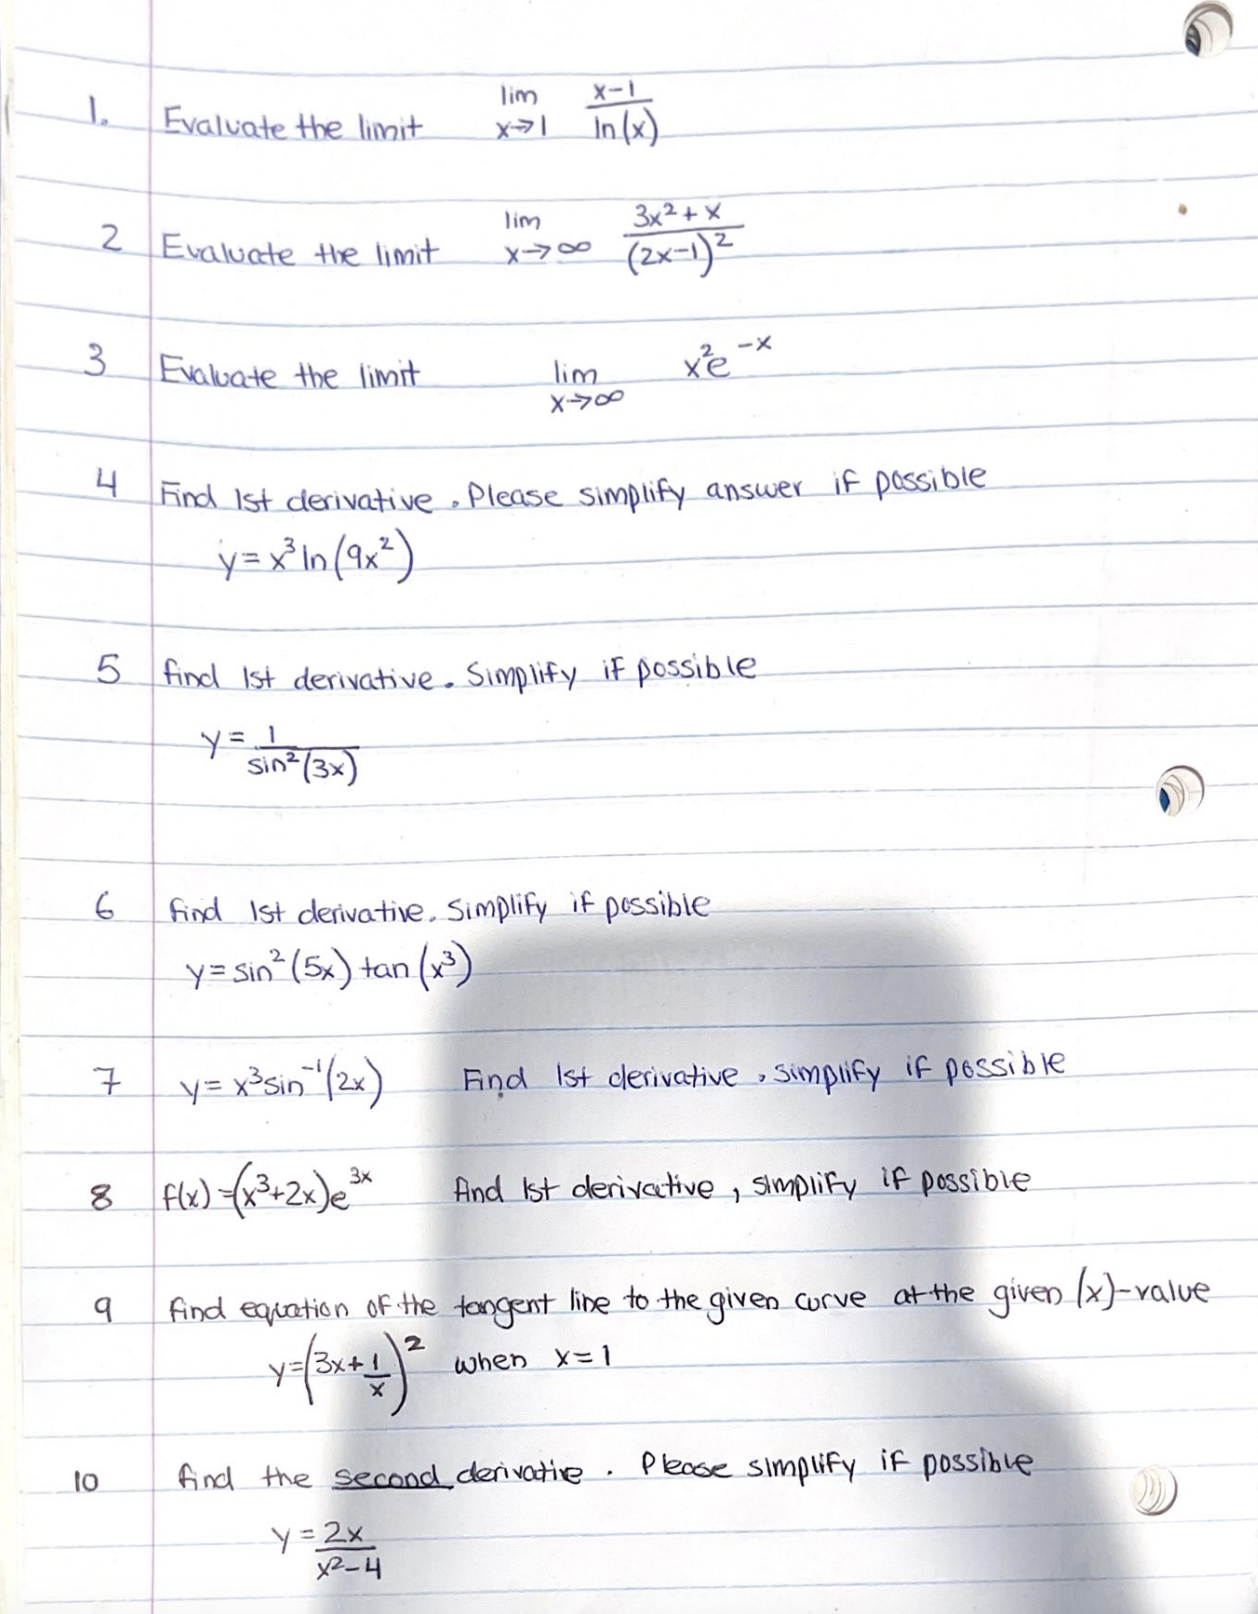 1. Evaluate the limit lim x→1 x-1/ln(x)
2 Evaluate the limit lim x→∞ 3x²+x/(2x-1)²
3 Evaluate the limit lim x→∞ x²e^-x
4 Find 1st derivative. Please simplify answer if possible
y=x³ln(9x²)
5 find 1st derivative. Simplify if possible
y=1/sin²(3x)
6 find 1st derivative. Simplify if possible
y=sin²(5x)tan(x³)
7 y=x³sin⁻¹(2x) Find 1st derivative, simplify if possible
8 f(x)=(x³+2x)e^3x find 1st derivative, simplify if possible
9 find equation of the tangent line to the given curve at the given (x)-value
y=(3x+1/x)² when x=1
10 find the second derivative. Please simplify if possible
y=2x/x²-4